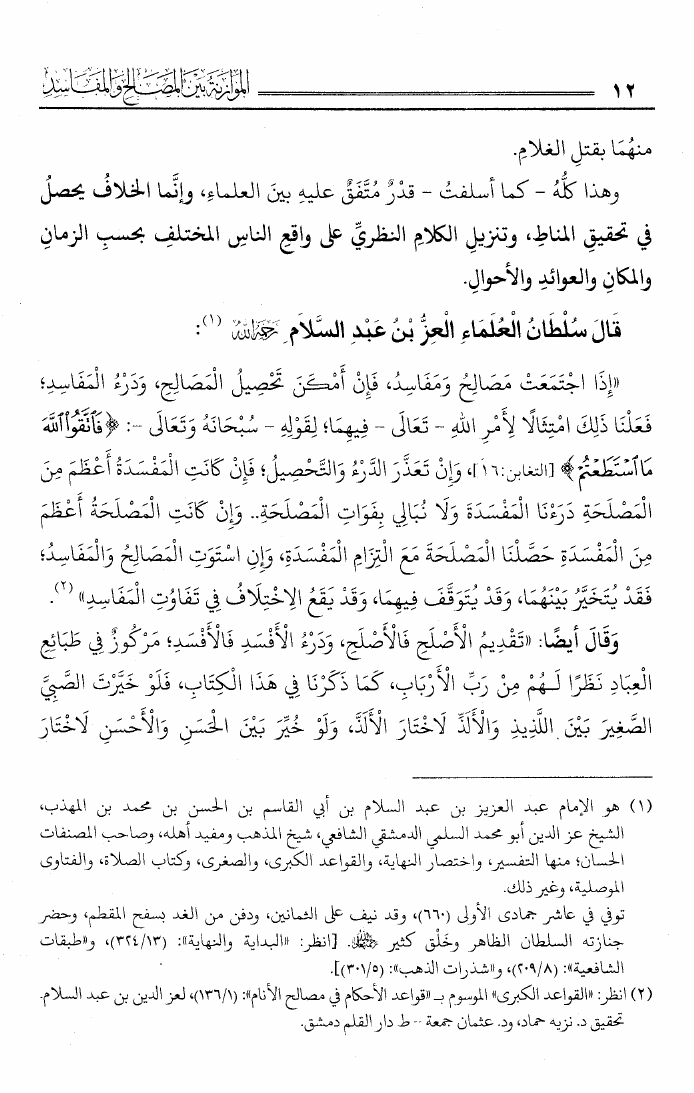 ١٢
الموازنة بين المصالح والمفاسد
منهُمَا بقتلِ الغلامِ.
وهذا كلُّهُ - كما أسلفتُ - قدْرٌ مُتَّفَقٌ عليهِ بينَ العلماءِ، وإنَّما الخلافُ يحصلُ
في تحقيقِ المناطِ، وتنزيلِ الكلامِ النظريِّ على واقعِ الناسِ المختلفِ بحسبِ الزمانِ
والمكانِ والعوائدِ والأحوالِ.
قَالَ سُلْطَانُ الْعُلَمَاءِ الْعِزُّ بْنُ عَبْدِ السَّلَامِ رَحِمَهُ اللَّهُ (١):
«إِذَا اجْتَمَعَتْ مَصَالِحُ وَمَفَاسِدُ، فَإِنْ أَمْكَنَ تَحْصِيلُ الْمَصَالِحِ، وَدَرْءُ الْمَفَاسِدِ؛
فَعَلْنَا ذَلِكَ امْتِثَالًا لِأَمْرِ اللهِ - تَعَالَى - فِيهِمَا؛ لِقَوْلِهِ - سُبْحَانَهُ وَتَعَالَى -: ﴿فَٱتَّقُوا۟ ٱللَّهَ
مَا ٱسْتَطَعْتُمْ﴾ [التغابن:١٦]، وَإِنْ تَعَذَّرَ الدَّرْءُ وَالتَّحْصِيلُ؛ فَإِنْ كَانَتِ الْمَفْسَدَةُ أَعْظَمَ مِنَ
الْمَصْلَحَةِ دَرَءْنَا الْمَفْسَدَةَ وَلَا نُبَالِي بِفَوَاتِ الْمَصْلَحَةِ.. وَإِنْ كَانَتِ الْمَصْلَحَةُ أَعْظَمَ
مِنَ الْمَفْسَدَةِ حَصَّلْنَا الْمَصْلَحَةَ مَعَ الْتِزَامِ الْمَفْسَدَةِ، وَإِنِ اسْتَوَتِ الْمَصَالِحُ وَالْمَفَاسِدُ؛
فَقَدْ يُتَخَيَّرُ بَيْنَهُمَا، وَقَدْ يُتَوَقَّفُ فِيهِمَا، وَقَدْ يَقَعُ الِاخْتِلَافُ فِي تَفَاوُتِ الْمَفَاسِدِ» (٢).
وَقَالَ أَيضًا: «تَقْدِيمُ الْأَصْلَحِ فَالْأَصْلَحِ، وَدَرْءُ الْأَفْسَدِ فَالْأَفْسَدِ؛ مَرْكُوزٌ فِي طَبَائِعِ
الْعِبَادِ نَظَرًا لَهُمْ مِنْ رَبِّ الْأَرْبَابِ، كَمَا ذَكَرْنَا فِي هَذَا الْكِتَابِ، فَلَوْ خَيَّرْتَ الصَّبِيَّ
الصَّغِيرَ بَيْنَ اللَّذِيذِ وَالْأَلَذِّ لَاخْتَارَ الْأَلَذَّ، وَلَوْ خُيِّرَ بَيْنَ الْحَسَنِ وَالْأَحْسَنِ لَاخْتَارَ
(١) هو الإمام عبد العزيز بن عبد السلام بن أبي القاسم بن الحسن بن محمد بن المهذب،
الشيخ عز الدين أبو محمد السلمي الدمشقي الشافعي، شيخ المذهب ومفيد أهله، وصاحب المصنفات
الحسان؛ منها التفسير، واختصار النهاية، والقواعد الكبرى، والصغرى، وكتاب الصلاة، والفتاوى
الموصلية، وغير ذلك.
توفي في عاشر جمادى الأولى (٦٦٠)، وقد نيف على الثمانين، ودفن من الغد بسفح المقطم، وحضر
جنازته السلطان الظاهر وخَلْق كثير. [انظر: «البداية والنهاية»: (٣٢٤/١٣)، و«طبقات
الشافعية»: (٢٠٩/٨)، و«شذرات الذهب»: (٣٠١/٥)].
(٢) انظر: «القواعد الكبرى» الموسوم بـ «قواعد الأحكام في مصالح الأنام»: (١٣٦/١)، لعز الدين بن عبد السلام.
تحقيق د. نزيه حماد، ود. عثمان جمعة -- ط دار القلم دمشق.